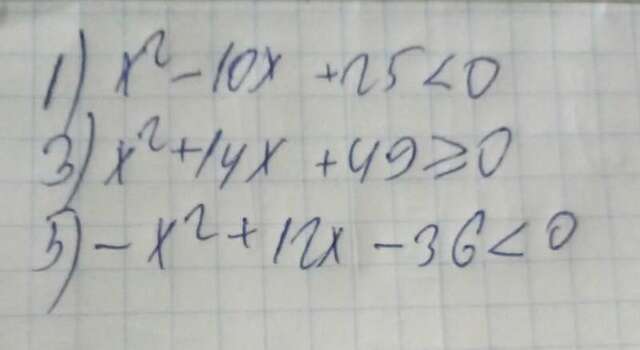 1) x² - 10x + 25 < 0
3) x² + 14x + 49 ≥ 0
5) - x² + 12x - 36 < 0